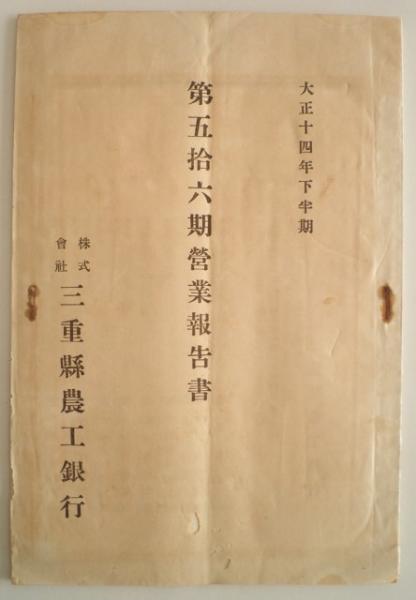 大正十四年下半期
第五拾六期營業報告書
株式
會社
三重縣農工銀行